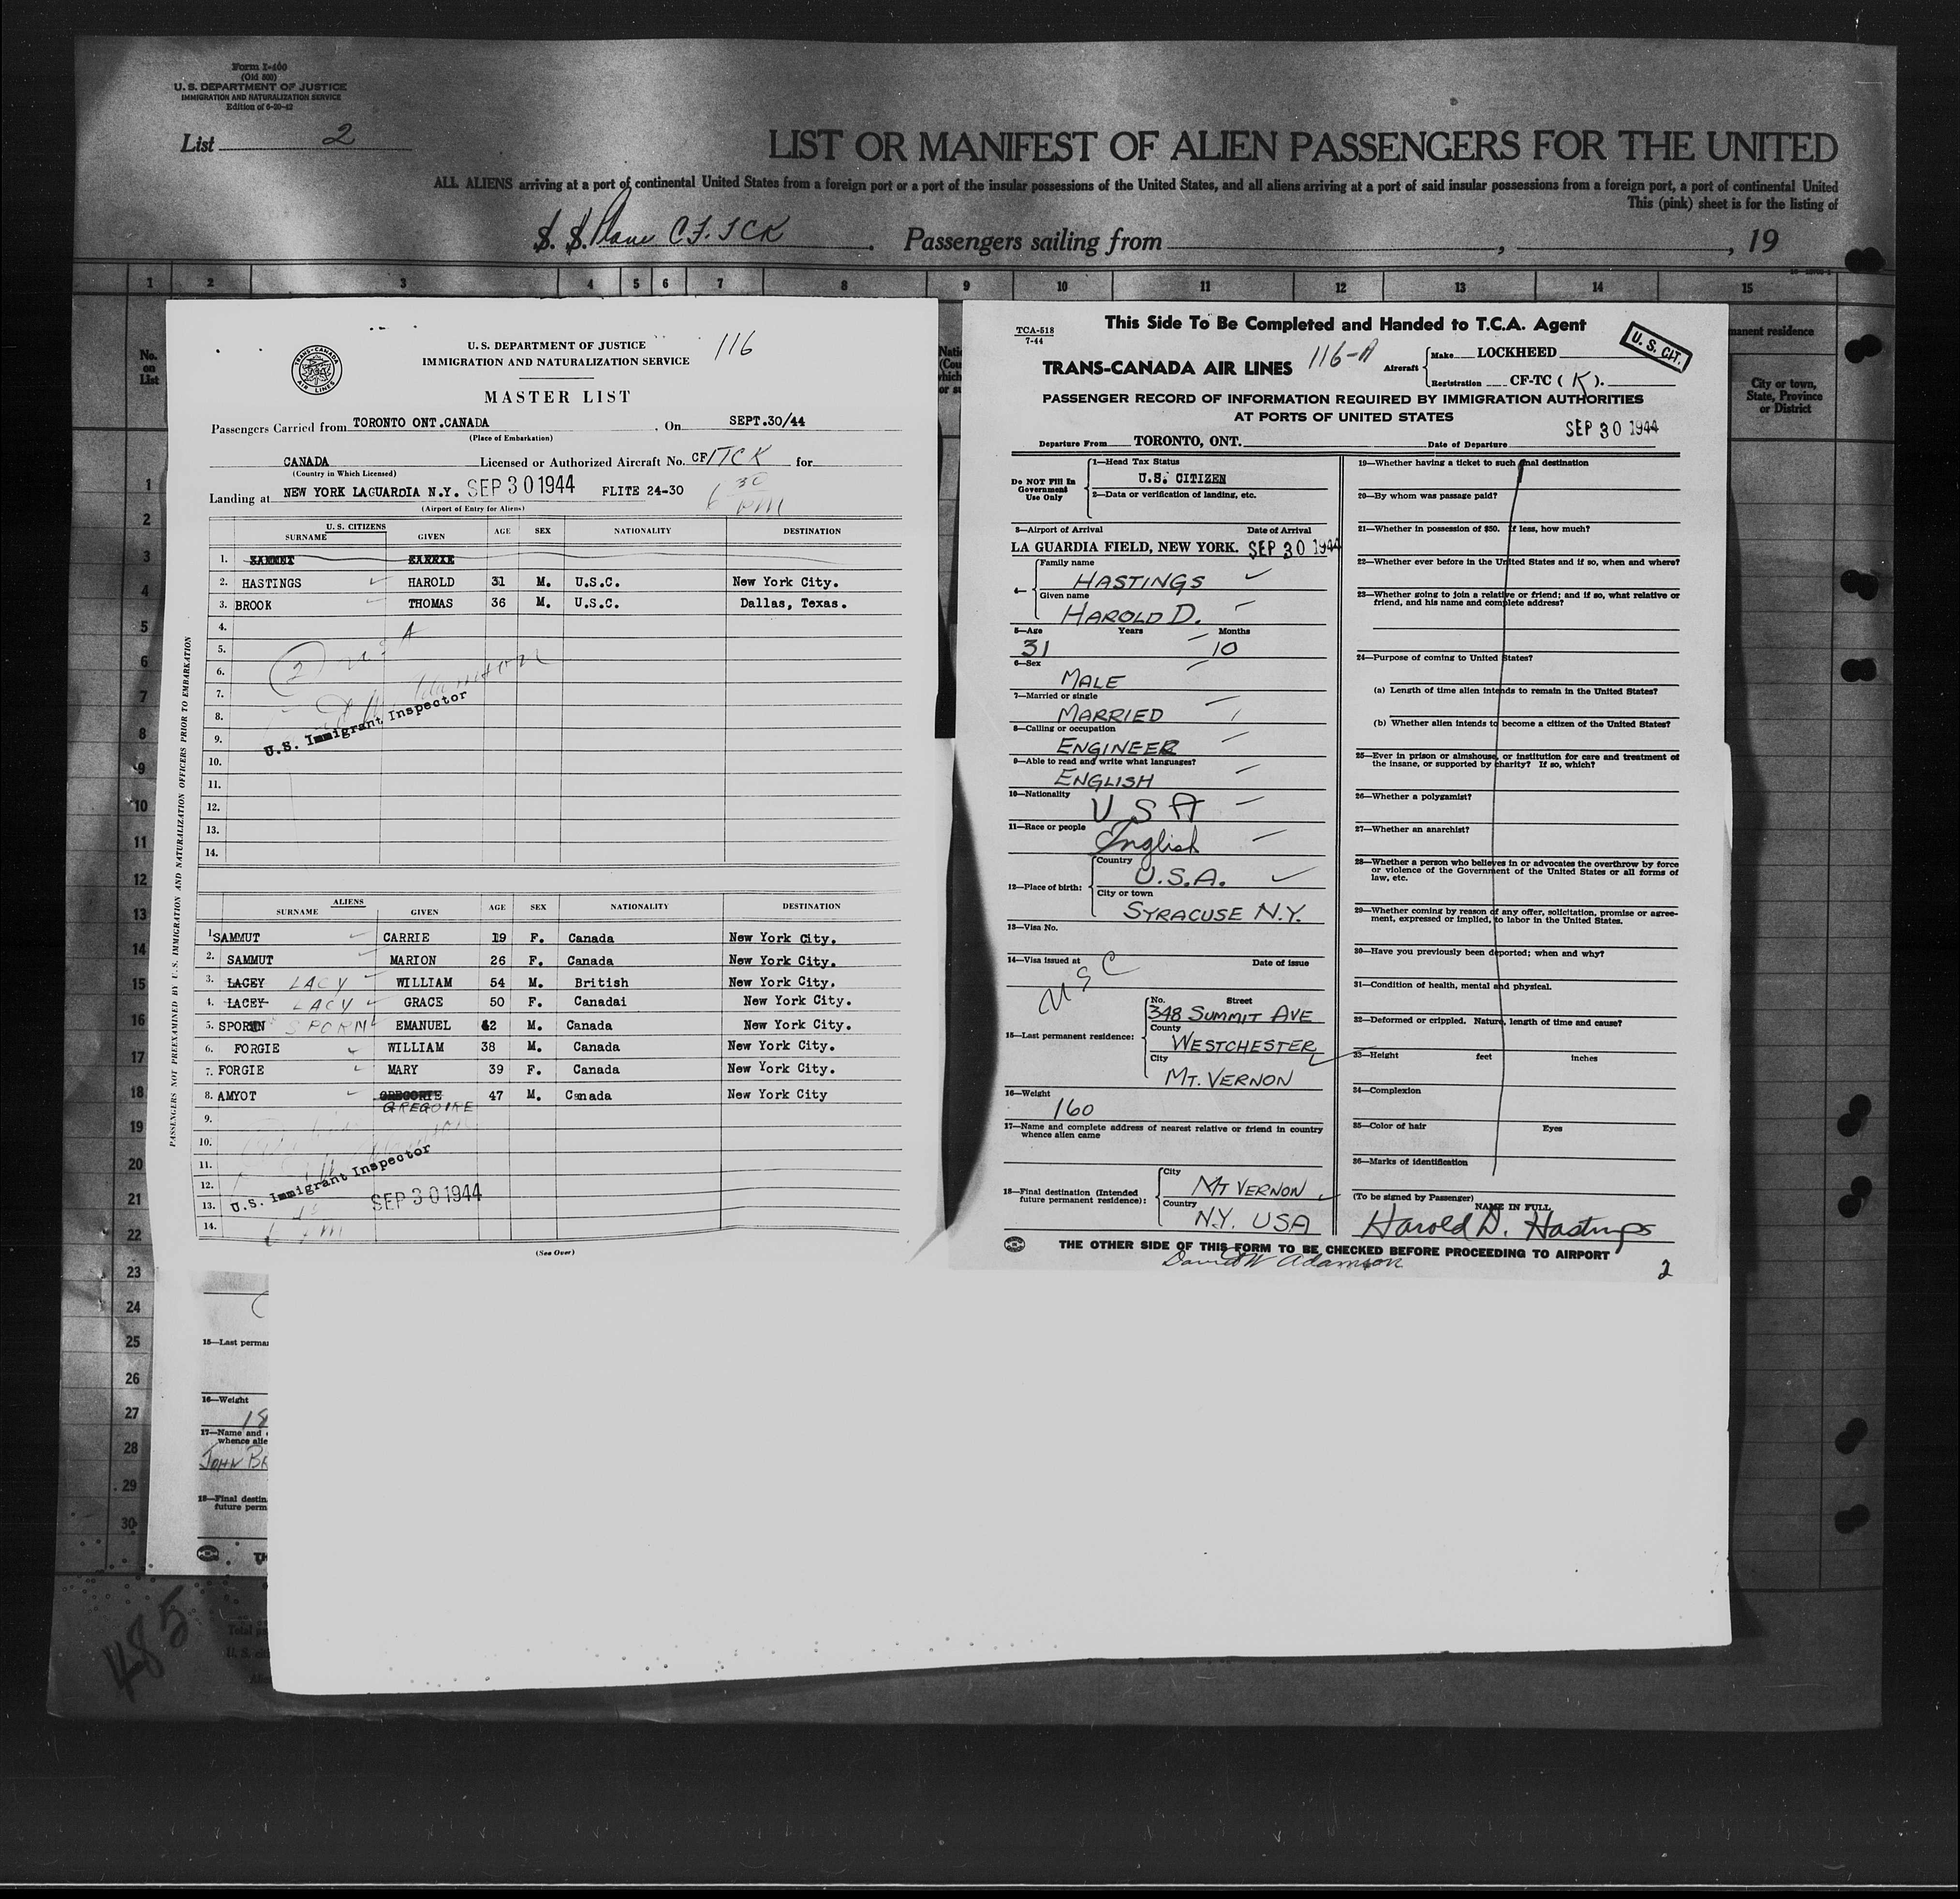 Form I-400
(Old 500)
U. S. DEPARTMENT OF JUSTICE
IMMIGRATION AND NATURALIZATION SERVICE
Edition of 6-20-42
List 2
LIST OR MANIFEST OF ALIEN PASSENGERS FOR THE UNITED
ALL ALIENS arriving at a port of continental United States from a foreign port or a port of the insular possessions of the United States, and all aliens arriving at a port of said insular possessions from a foreign port, a port of continental United
This (pink) sheet is for the listing of
S. S. Plane CF. TCK . Passengers sailing from , , 19
1 2 3 4 5 6 7 8 9 10 11 12 13 14 15
No. on List
manent residence
City or town, State, Province or District
1
2
3
4
5
6
7
8
9
10
11
12
13
14
15
16
17
18
19
20
21
22
23
24
25
26
27
28
29
30
TRANS-CANADA AIR LINES
U. S. DEPARTMENT OF JUSTICE
IMMIGRATION AND NATURALIZATION SERVICE
116
MASTER LIST
Passengers Carried from TORONTO ONT.CANADA , On SEPT.30/44
(Place of Embarkation)
CANADA Licensed or Authorized Aircraft No. CF/TCK for
(Country in Which Licensed)
Landing at NEW YORK LAGUARDIA N.Y. SEP 30 1944 FLITE 24-30 6 30 PM
(Airport of Entry for Aliens)
U. S. CITIZENS
SURNAME GIVEN AGE SEX NATIONALITY DESTINATION
1. SAMMUT CARRIE
2. HASTINGS HAROLD 31 M. U.S.C. New York City.
3. BROOK THOMAS 36 M. U.S.C. Dallas, Texas.
4.
5.
6.
7.
8.
9.
U.S. Immigrant Inspector
10.
11.
12.
13.
14.
ALIENS
SURNAME GIVEN AGE SEX NATIONALITY DESTINATION
1 SAMMUT CARRIE 19 F. Canada New York City.
2. SAMMUT MARION 26 F. Canada New York City.
3. LACEY LACY WILLIAM 54 M. British New York City.
4. LACEY LACY GRACE 50 F. Canadai New York City.
5. SPORN SPORN EMANUEL 42 M. Canada New York City.
6. FORGIE WILLIAM 38 M. Canada New York City.
7. FORGIE MARY 39 F. Canada New York City.
8. AMYOT GREGORIE 47 M. Canada New York City
GREGOIRE
9.
10.
11.
12.
U.S. Immigrant Inspector
13. SEP 30 1944
14.
(See Over)
PASSENGERS NOT PREEXAMINED BY U. S. IMMIGRATION AND NATURALIZATION OFFICERS PRIOR TO EMBARKATION
15—Last perma
16—Weight
18
17—Name and
whence alie
JOHN BR
18—Final destin
future perm
TH
485
Total pa
U. S. cit
Alien
TCA-518
7-44
This Side To Be Completed and Handed to T.C.A. Agent
U. S. CIT.
TRANS-CANADA AIR LINES 116-A
Aircraft Make LOCKHEED
Registration CF-TC ( K ).
PASSENGER RECORD OF INFORMATION REQUIRED BY IMMIGRATION AUTHORITIES
AT PORTS OF UNITED STATES
Departure From TORONTO, ONT. Date of Departure SEP 30 1944
Do NOT Fill In Government Use Only
1—Head Tax Status
U.S. CITIZEN
2—Data or verification of landing, etc.
3—Airport of Arrival Date of Arrival
LA GUARDIA FIELD, NEW YORK. SEP 30 1944
4— Family name
HASTINGS
Given name
HAROLD D.
5—Age Years Months
31 10
6—Sex
MALE
7—Married or single
MARRIED
8—Calling or occupation
ENGINEER
9—Able to read and write what languages?
ENGLISH
10—Nationality
USA
11—Race or people
English
12—Place of birth:
Country
U.S.A.
City or town
SYRACUSE N.Y.
13—Visa No.
14—Visa issued at Date of issue
USC
15—Last permanent residence:
No. Street
348 SUMMIT AVE
County
WESTCHESTER
City
MT. VERNON
16—Weight
160
17—Name and complete address of nearest relative or friend in country
whence alien came
18—Final destination (Intended
future permanent residence):
City
MT VERNON
Country
N.Y. USA
19—Whether having a ticket to such final destination
20—By whom was passage paid?
21—Whether in possession of $50. If less, how much?
22—Whether ever before in the United States and if so, when and where?
23—Whether going to join a relative or friend; and if so, what relative or
friend, and his name and complete address?
24—Purpose of coming to United States?
(a) Length of time alien intends to remain in the United States?
(b) Whether alien intends to become a citizen of the United States?
25—Ever in prison or almshouse, or institution for care and treatment of
the insane, or supported by charity? If so, which?
26—Whether a polygamist?
27—Whether an anarchist?
28—Whether a person who believes in or advocates the overthrow by force
or violence of the Government of the United States or all forms of
law, etc.
29—Whether coming by reason of any offer, solicitation, promise or agree-
ment, expressed or implied, to labor in the United States.
30—Have you previously been deported; when and why?
31—Condition of health, mental and physical.
32—Deformed or crippled. Nature, length of time and cause?
33—Height feet inches
34—Complexion
35—Color of hair Eyes
36—Marks of identification
(To be signed by Passenger)
NAME IN FULL
Harold D. Hastings
THE OTHER SIDE OF THIS FORM TO BE CHECKED BEFORE PROCEEDING TO AIRPORT
David W Adamson
2